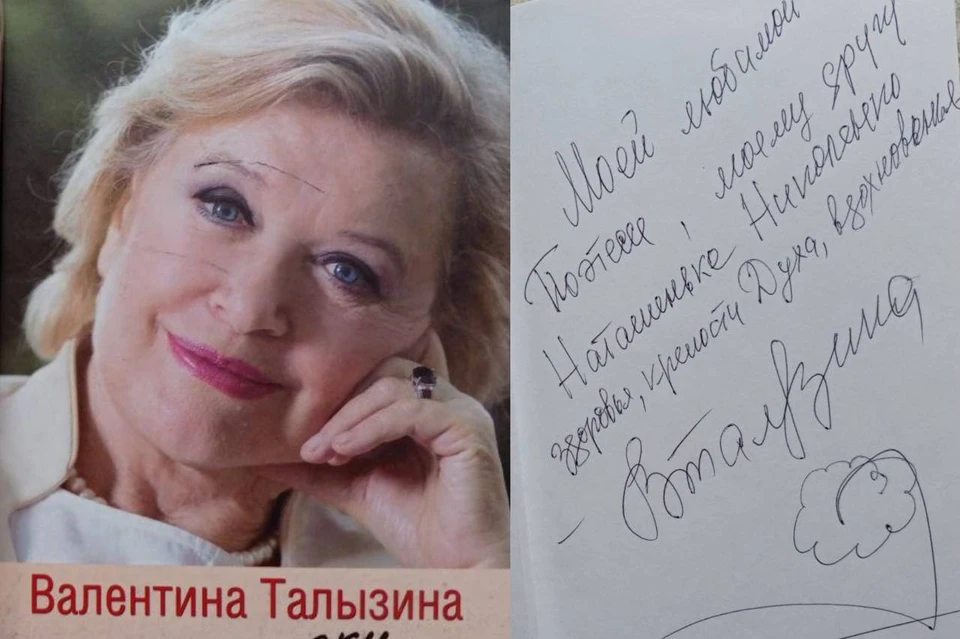 Валентина Талызина
Моей любимой
Поэтессе, моему другу
Наташеньке
здоровья, крепости Духа, вдохновенья
ВТалызина